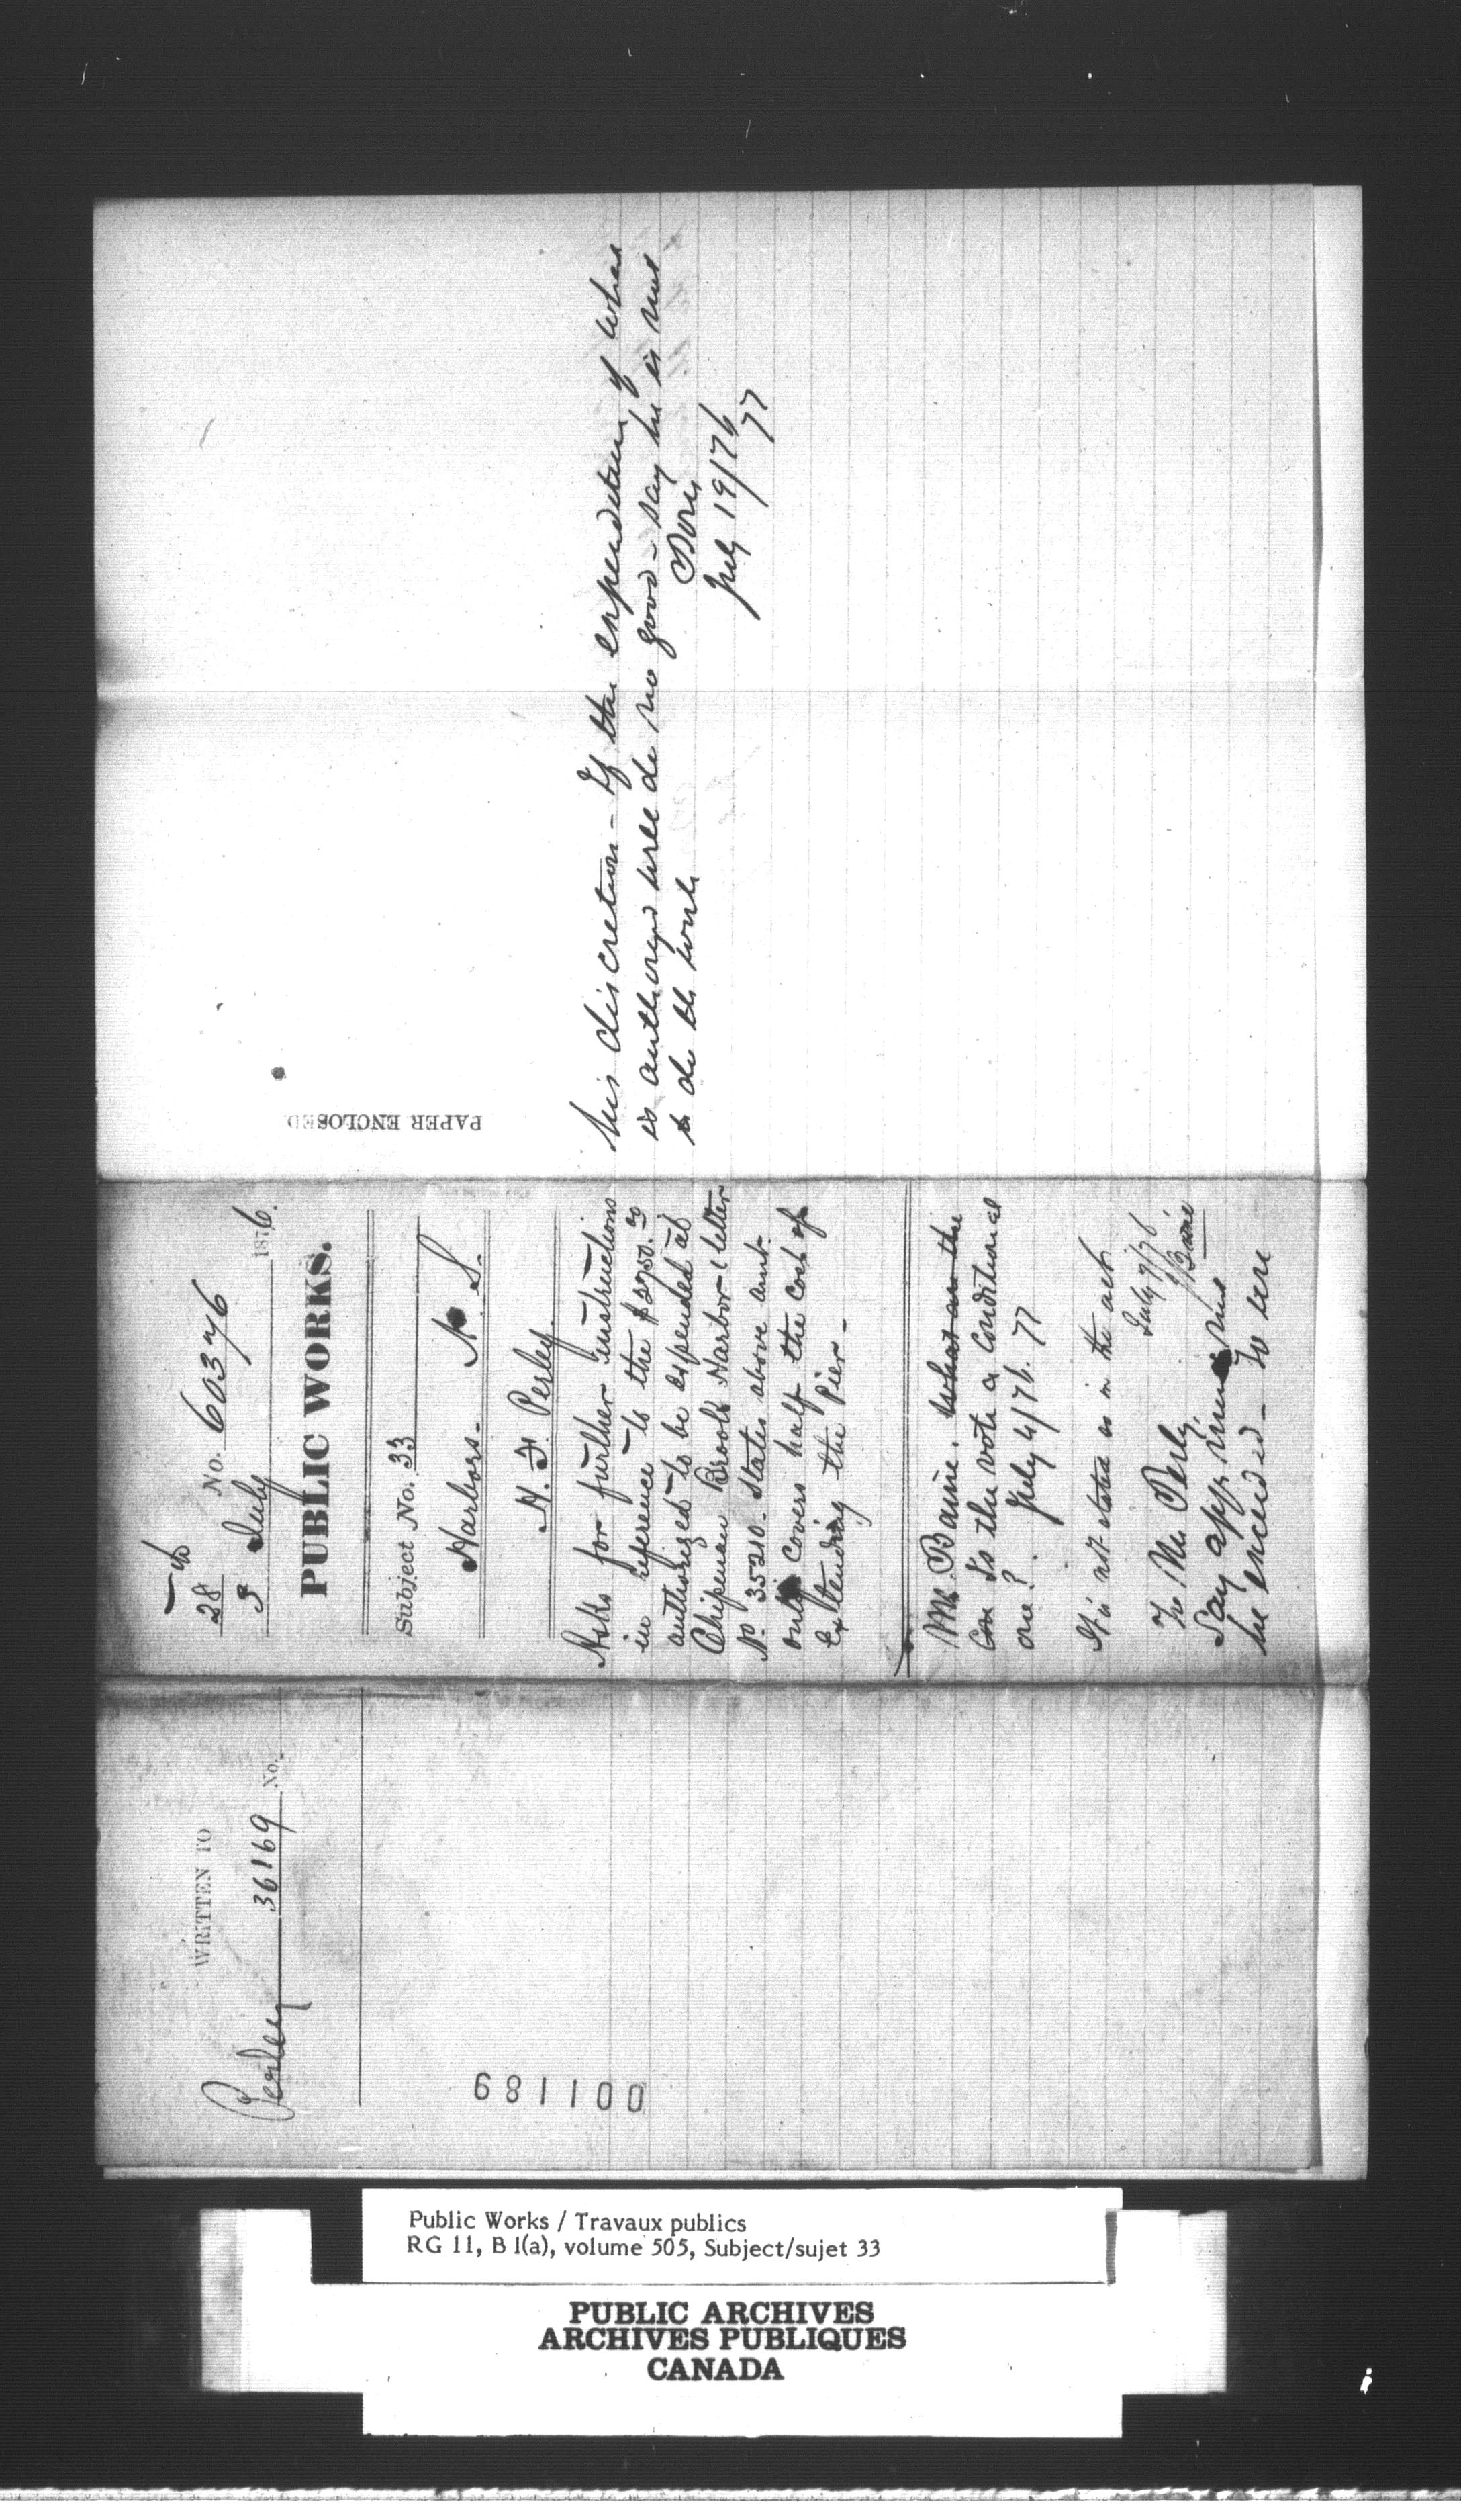 WRITTEN TO
Perley 36169 No.
001189
28 No. 60376
3 July 1876.
PUBLIC WORKS.
Subject No. 33
Harbors. N. S.
H. F. Perley.
Asks for further instructions
in reference to the $2750.00
authorized to be expended at
Chipman Brook Harbor (letter
No. 35210. States above amt.
only covers half the cost of
Extending the Pier -
Mr. Baine. What are the
Con Is the vote a Conditional
one? July 4/76. 77
It is not stated as in the act
July 7/76
Baine
To Mr. Perly
Say app. must
be exceed - to use
PAPER ENCLOSED.
his discretion - If the expenditure of what
is authorized will do no good - say he is not
to do the work
July 19/76
77
Public Works / Travaux publics
RG 11, B 1(a), volume 505, Subject/sujet 33
PUBLIC ARCHIVES
ARCHIVES PUBLIQUES
CANADA